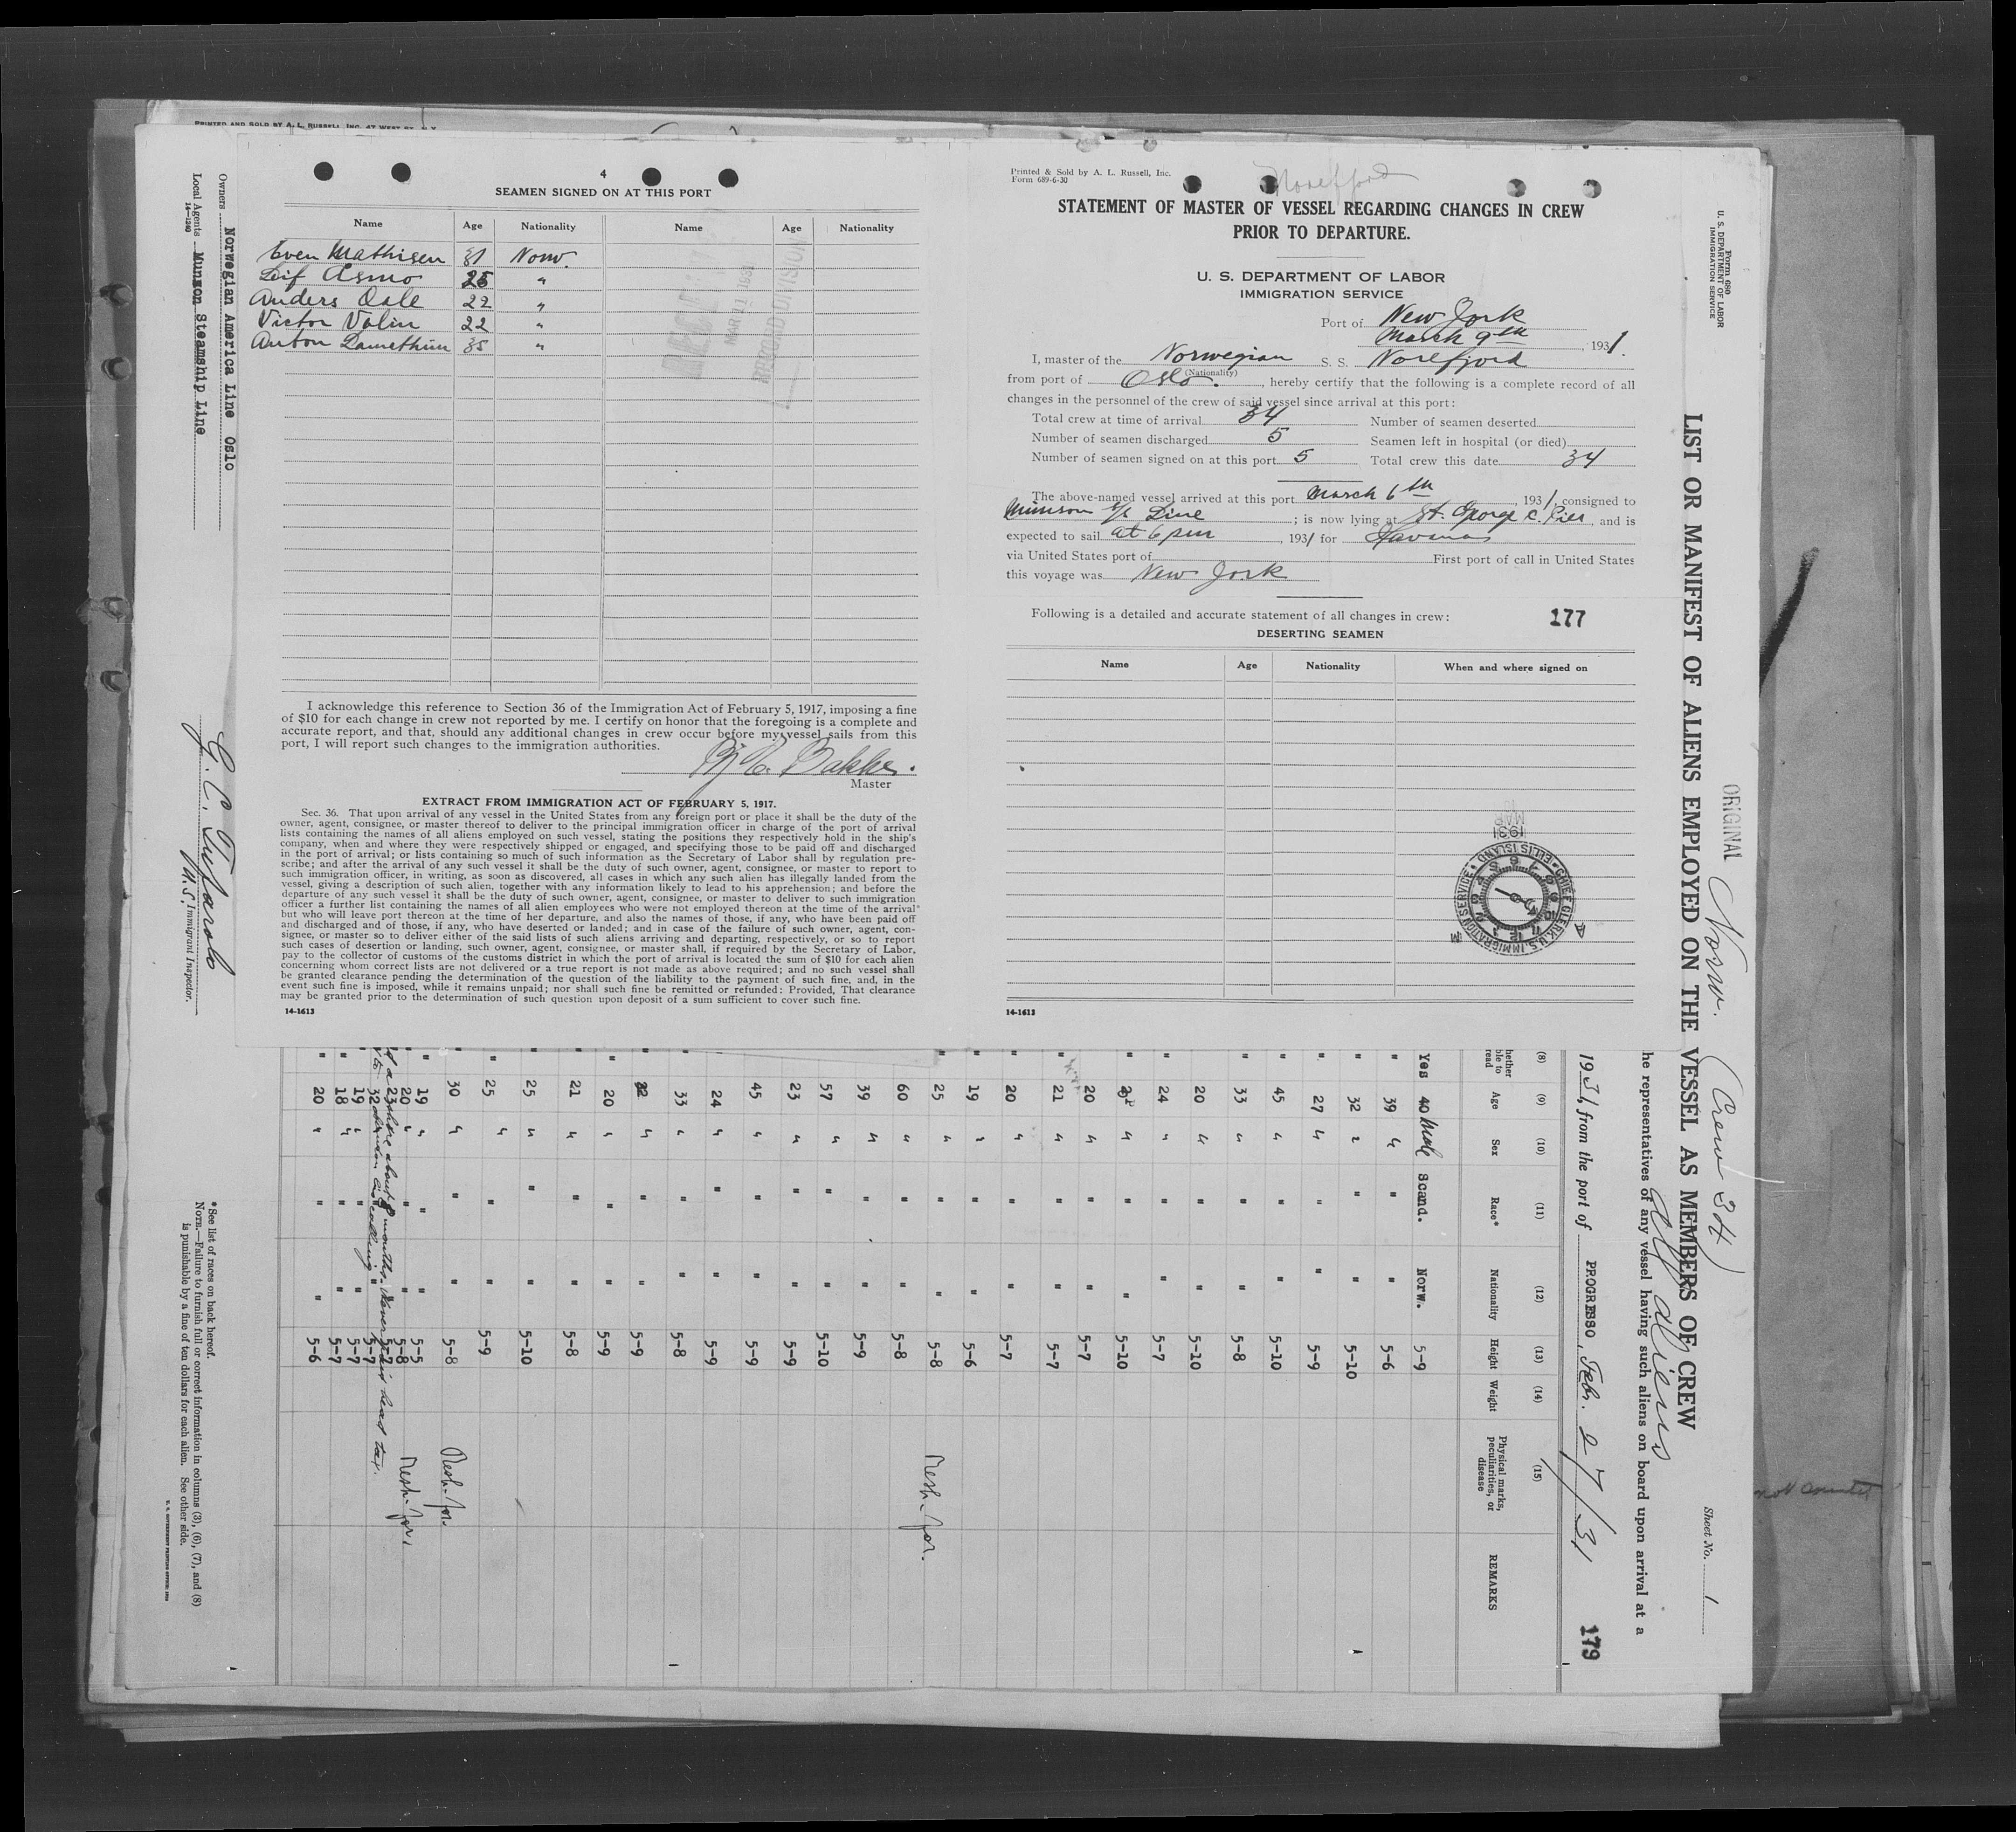 PRINTED AND SOLD BY A. L. RUSSELL, INC. 47 WEST ST. N.Y.
4
SEAMEN SIGNED ON AT THIS PORT
Name Age Nationality Name Age Nationality
Even Mathisen 31 Norw.
Leif Asmo 25 "
Anders Dale 22 "
Victor Valin 22 "
Anton 35 "
MAR 11 1931
RECORD DIVISION
I acknowledge this reference to Section 36 of the Immigration Act of February 5, 1917, imposing a fine
of $10 for each change in crew not reported by me. I certify on honor that the foregoing is a complete and
accurate report, and that, should any additional changes in crew occur before my vessel sails from this
port, I will report such changes to the immigration authorities.
Bakke.
Master
EXTRACT FROM IMMIGRATION ACT OF FEBRUARY 5, 1917.
Sec. 36. That upon arrival of any vessel in the United States from any foreign port or place it shall be the duty of the
owner, agent, consignee, or master thereof to deliver to the principal immigration officer in charge of the port of arrival
lists containing the names of all aliens employed on such vessel, stating the positions they respectively hold in the ship's
company, when and where they were respectively shipped or engaged, and specifying those to be paid off and discharged
in the port of arrival; or lists containing so much of such information as the Secretary of Labor shall by regulation pre-
scribe; and after the arrival of any such vessel it shall be the duty of such owner, agent, consignee, or master to report to
such immigration officer, in writing, as soon as discovered, all cases in which any such alien has illegally landed from the
vessel, giving a description of such alien, together with any information likely to lead to his apprehension; and before the
departure of any such vessel it shall be the duty of such owner, agent, consignee, or master to deliver to such immigration
officer a further list containing the names of all alien employees who were not employed thereon at the time of the arrival
but who will leave port thereon at the time of her departure, and also the names of those, if any, who have been paid off
and discharged and of those, if any, who have deserted or landed; and in case of the failure of such owner, agent, con-
signee, or master so to deliver either of the said lists of such aliens arriving and departing, respectively, or so to report
such cases of desertion or landing, such owner, agent, consignee, or master shall, if required by the Secretary of Labor,
pay to the collector of customs of the customs district in which the port of arrival is located the sum of $10 for each alien
concerning whom correct lists are not delivered or a true report is not made as above required; and no such vessel shall
be granted clearance pending the determination of the question of the liability to the payment of such fine, and, in the
event such fine is imposed, while it remains unpaid; nor shall such fine be remitted or refunded: Provided, That clearance
may be granted prior to the determination of such question upon deposit of a sum sufficient to cover such fine.
14-1613
Printed & Sold by A. L. Russell, Inc.
Form 689-6-30
Norefjord
STATEMENT OF MASTER OF VESSEL REGARDING CHANGES IN CREW
PRIOR TO DEPARTURE.
U. S. DEPARTMENT OF LABOR
IMMIGRATION SERVICE
Port of New York
March 9th, 1931.
I, master of the Norwegian S. S. Norefjord
(Nationality)
from port of Oslo., hereby certify that the following is a complete record of all
changes in the personnel of the crew of said vessel since arrival at this port:
Total crew at time of arrival 34 Number of seamen deserted
Number of seamen discharged 5 Seamen left in hospital (or died)
Number of seamen signed on at this port 5 Total crew this date 34
The above-named vessel arrived at this port March 6th, 1931, consigned to
Munson S/S Line; is now lying at St. George C. Pier, and is
expected to sail at 6 pm, 1931 for Havana
via United States port of First port of call in United States
this voyage was New York
Following is a detailed and accurate statement of all changes in crew: 177
DESERTING SEAMEN
Name Age Nationality When and where signed on
MAR
1931
CHIEF CLERK U.S. IMMIGRATION SERVICE ELLIS ISLAND
14-1613
Form 680
U. S. DEPARTMENT OF LABOR
IMMIGRATION SERVICE
ORIGINAL Norw. (Crew 34) Sheet No. 1
LIST OR MANIFEST OF ALIENS EMPLOYED ON THE VESSEL AS MEMBERS OF CREW
All aliens
he representatives of any vessel having such aliens on board upon arrival at a
1931, from the port of PROGRESSO, Feb. 27/31 179
(8) (9) (10) (11) (12) (13) (14) (15)
hether ble to read Age Sex Race* Nationality Height Weight Physical marks, peculiarities, or disease REMARKS
Yes 40 Male Scand. Norw. 5-9
" 39 " " " 5-6
" 32 " " " 5-10
" 27 " " " 5-9
" 45 " " " 5-10
" 33 " " " 5-8
20 " " " 5-10
" 24 " " " 5-7
" " " " 5-10
" 20 " " " 5-7
" 21 " " " 5-7
" 20 " " " 5-7
" 19 " " " 5-6
" 25 " " " 5-8
60 " " " 5-8
39 " " " 5-9
57 " " " 5-10
23 " " " 5-9
45 " " " 5-9
24 " " " 5-9
" 33 " " " 5-8
" 22 " " " 5-9
" 20 " " " 5-9
" 21 " " " 5-8
" 25 " " " 5-10
" 25 " " " 5-9
" 30 " " " 5-8
" 19 " " " 5-5
20 " " " 5-8
23 " " 5-7
32 " " 5-7
19 " " " 5-7
" 18 " " " 5-7
" 20 " " " 5-6
Owners Norwegian America Line Oslo
Local Agents Munson Steamship Line
14-1240
U.S. Immigrant Inspector.
*See list of races on back hereof.
NOTE.—Failure to furnish full or correct information in columns (3), (6), (7), and (8)
is punishable by a fine of ten dollars for each alien. See other side.
not counted